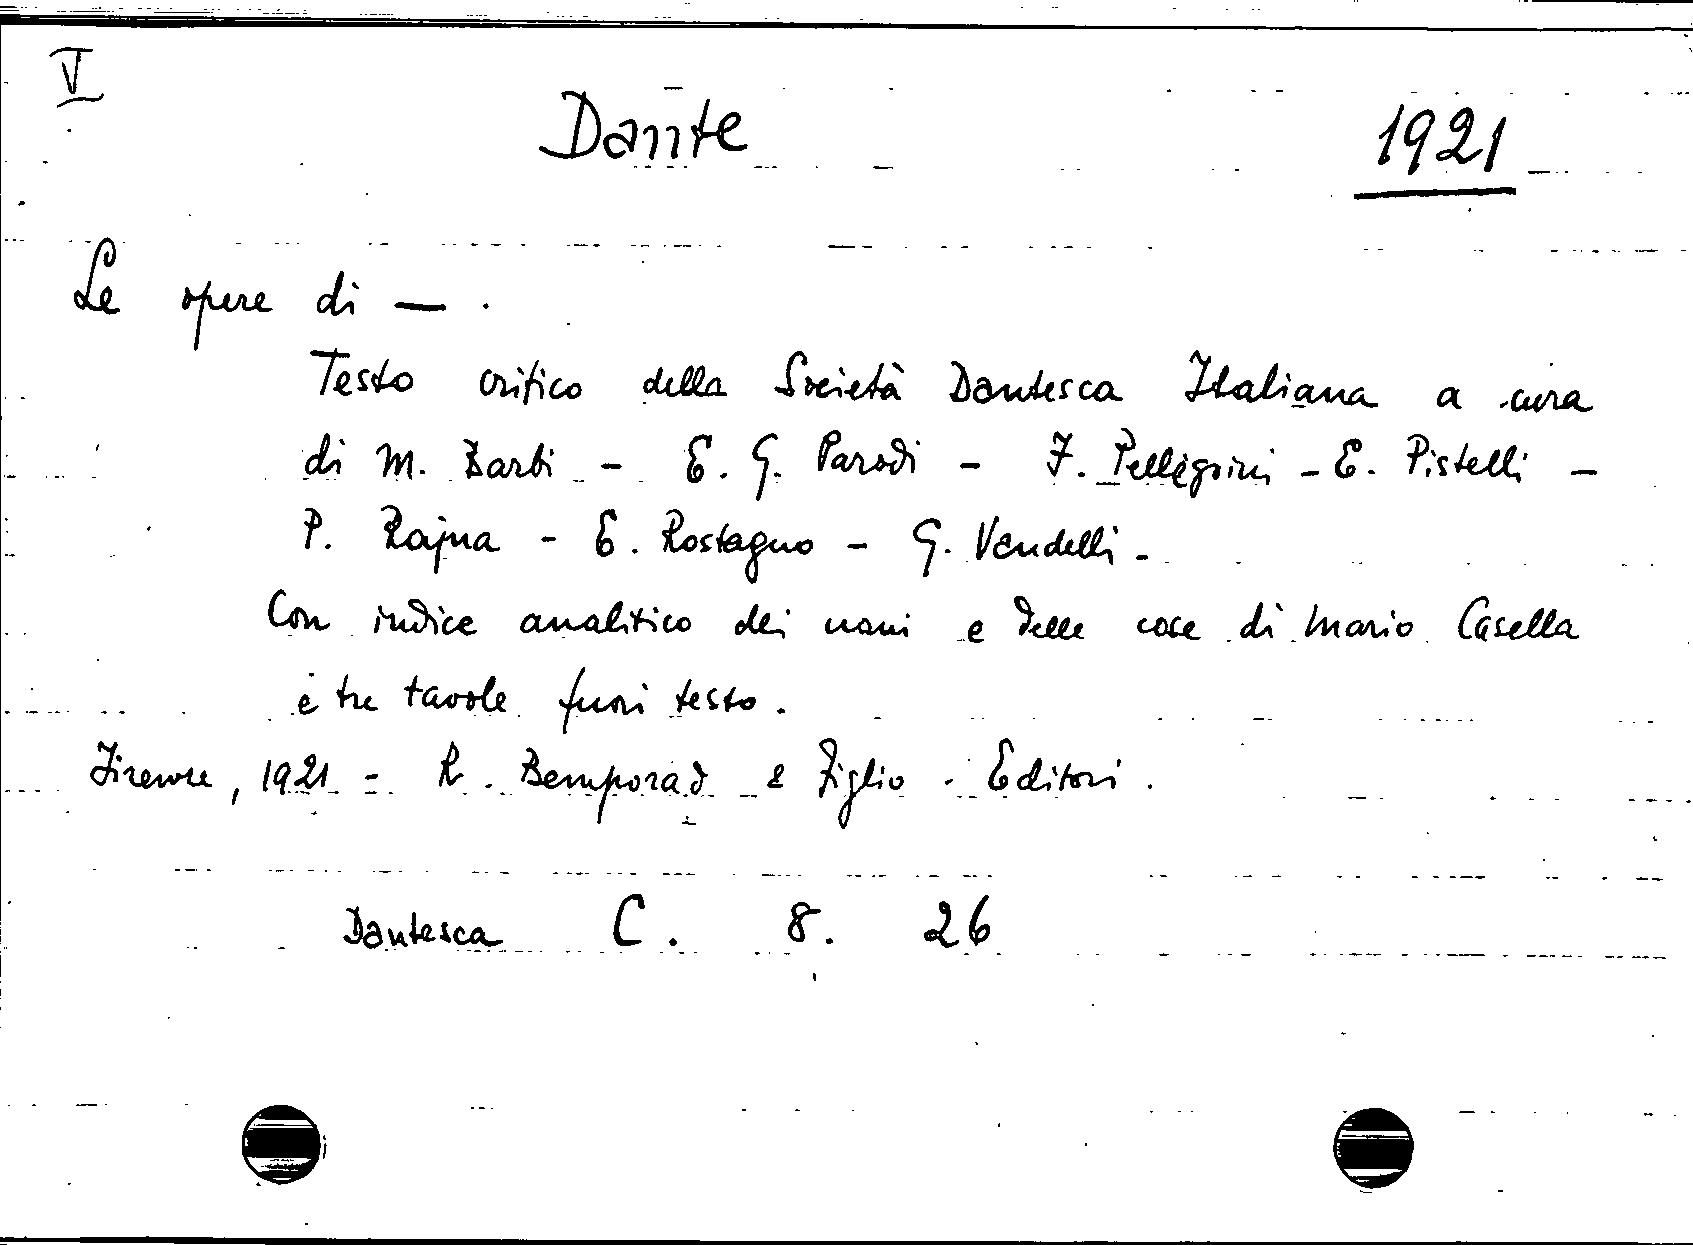 V
Dante 1921
Le opere di — .
Testo critico della Società Dantesca Italiana a cura
di M. Barbi - E. G. Parodi - F. Pellegrini - E. Pistelli -
P. Rajna - E. Rostagno - G. Vandelli -
Con indice analitico dei nomi e delle cose di Mario Casella
e tre tavole fuori testo.
Firenze, 1921 - R. Bemporad & Figlio - Editori.
Dantesca C. 8. 26